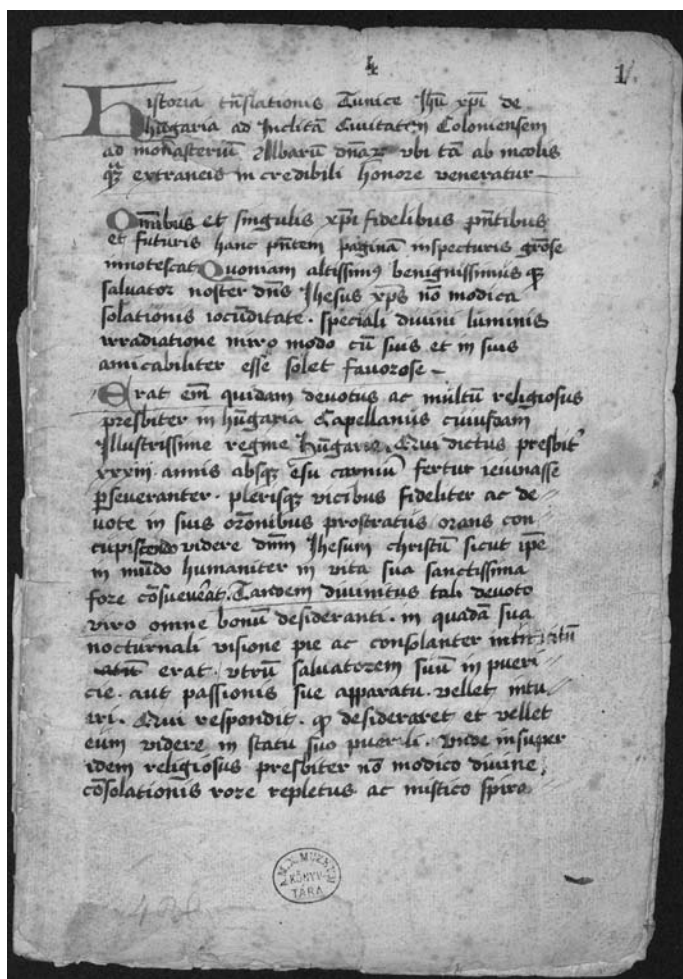 4
1.
Historia tn̄slationis Tunice Jhū xp̄i de
Hūgaria ad Inclitā Civitatem Coloniensem
ad monasteriū Albarū dn̄aꝝ vbi tā ab incolis
qꝫ extraneis in credibili honore veneratur
Omībus et singulis xp̄i fidelibus pn̄tibus
et futuris hanc pn̄tem paginā inspecturis grōse
innotescat Quoniam altissimꝰ benignissimus qꝫ
salvator noster dn̄s Jhesus xp̄s nō modica
solationis iocūditate . speciali divini luminis
irradiatione miro modo cū suis et in suis
amicabiliter esse solet favorose
Erat em̄ quidam devotus ac multū religiosus
presbiter in hūgaria Capellanus cuiusdam
Illustrissime regine hūgarie . Qui dictus presbit̄
xxxiii . annis absqꝫ esu carniū fertur ieiunasse
ꝑseveranter . plerisqꝫ vicibus fideliter ac de
vote in suis orōnibus prostratus orans con
cupiscendo videre dn̄m Jhesum christū sicut ip̄e
in mūdo humaniter in vita sua sanctissima
fore cōsueverat . Tandem divinitus tali devoto
viro omne bonū desideranti . in quadā sua
nocturnali visione pie ac consolanter
erat . vtrū salvatorem suū in pueri
cie . aut passionis sue apparatu . vellet intu
eri . Qui respondit . qꝫ desideraret et vellet
eum videre in statu suo puerili . vnde insuper
idem religiosus presbiter nō modico divine
cōsolationis rore repletus ac mistico spiro
MUZEUM
KÖNYV-
TÁRA